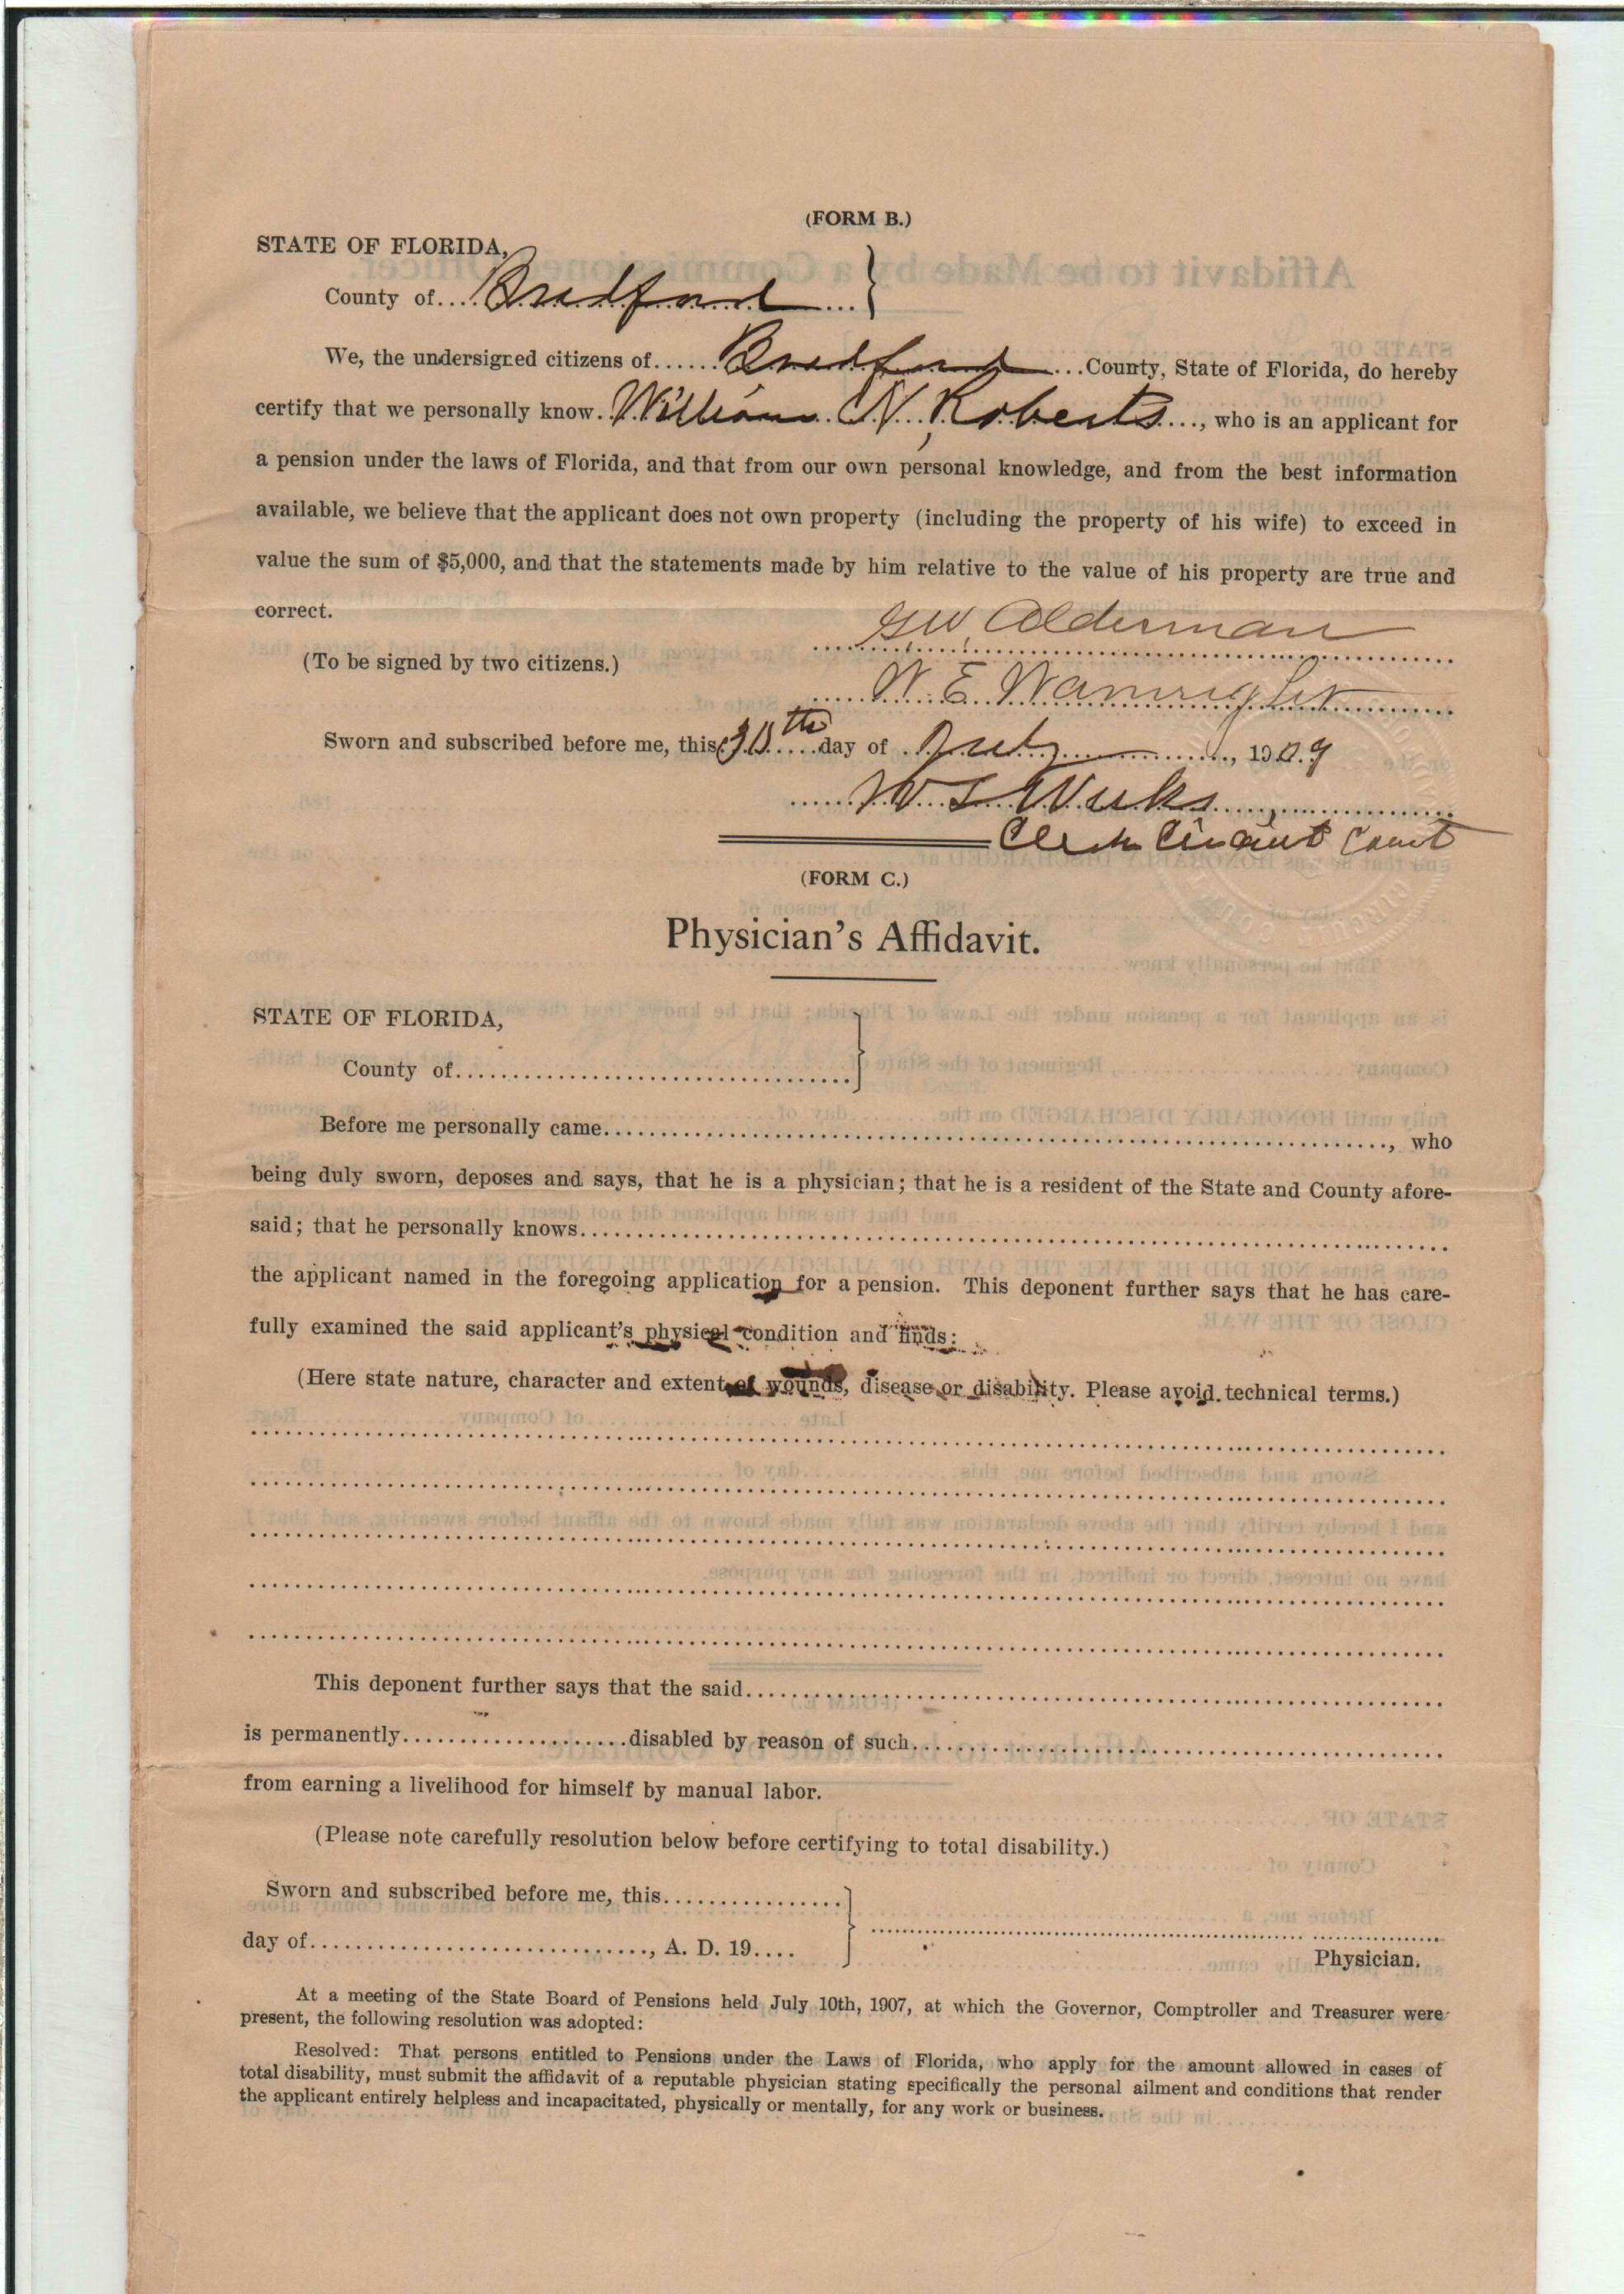 (FORM B.)
STATE OF FLORIDA,
County of....Bradford....}
We, the undersigned citizens of......Bradford...County, State of Florida, do hereby
certify that we personally know. William N. Roberts...., who is an applicant for
a pension under the laws of Florida, and that from our own personal knowledge, and from the best information
available, we believe that the applicant does not own property (including the property of his wife) to exceed in
value the sum of $5,000, and that the statements made by him relative to the value of his property are true and
correct.
G W Alderman
(To be signed by two citizens.)
W. E. Wainright
Sworn and subscribed before me, this 30th day of July, 1909
W. L. Weeks
Clerk Circuit Court
(FORM C.)
Physician's Affidavit.
STATE OF FLORIDA,
County of....................}
Before me personally came...................., who
being duly sworn, deposes and says, that he is a physician; that he is a resident of the State and County afore-
said; that he personally knows....................
the applicant named in the foregoing application for a pension. This deponent further says that he has care-
fully examined the said applicant's physical condition and finds:
(Here state nature, character and extent of wounds, disease or disability. Please avoid technical terms.)
This deponent further says that the said....................
is permanently....................disabled by reason of such....................
from earning a livelihood for himself by manual labor.
(Please note carefully resolution below before certifying to total disability.)
Sworn and subscribed before me, this................}
day of...................., A. D. 19....
Physician.
At a meeting of the State Board of Pensions held July 10th, 1907, at which the Governor, Comptroller and Treasurer were
present, the following resolution was adopted:
Resolved: That persons entitled to Pensions under the Laws of Florida, who apply for the amount allowed in cases of
total disability, must submit the affidavit of a reputable physician stating specifically the personal ailment and conditions that render
the applicant entirely helpless and incapacitated, physically or mentally, for any work or business.